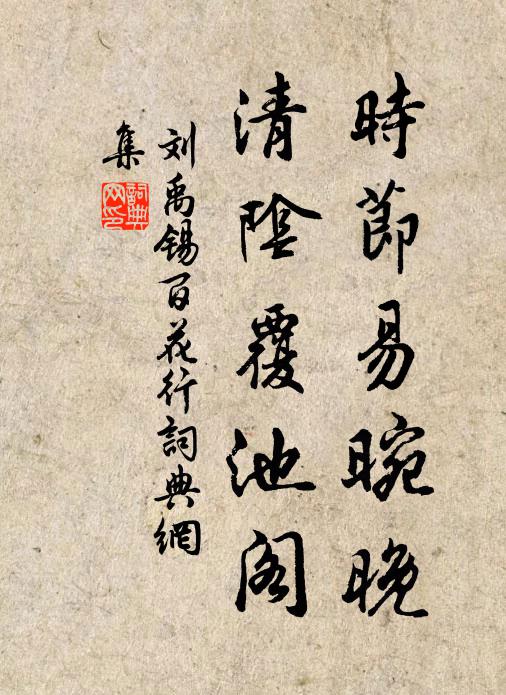 時節易晼晚
清陰覆池阁
刘禹锡百花行詞典網
集
詞典網印